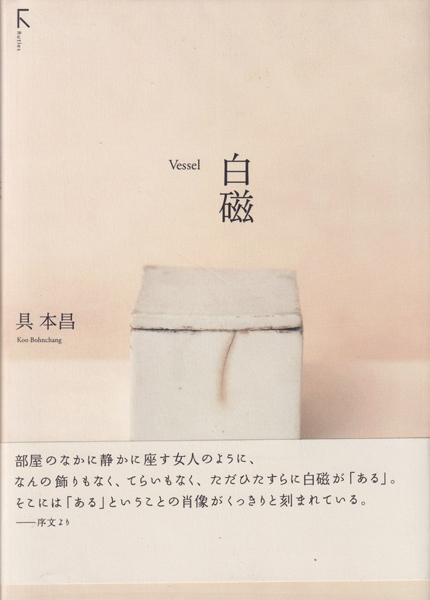 Rutles
Vessel
白磁
具 本昌
Koo Bohnchang
部屋のなかに静かに座す女人のように、
なんの飾りもなく、てらいもなく、ただひたすらに白磁が「ある」。
そこには「ある」ということの肖像がくっきりと刻まれている。
——序文より